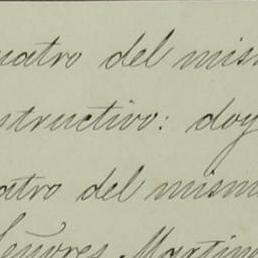 uatro del mism
nstructivo: doy
atro del mismo
Señores Martin